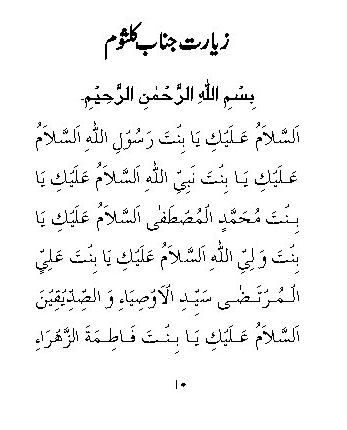 زیارت جناب کلثوم
بِسْمِ اللّٰهِ الرَّحْمٰنِ الرَّحِيْمِ۔
اَلسَّلَامُ عَلَيْكِ يَا بِنْتَ رَسُوْلِ اللّٰهِ اَلسَّلَامُ
عَلَيْكِ يَا بِنْتَ نَبِيِّ اللّٰهِ اَلسَّلَامُ عَلَيْكِ يَا
بِنْتَ مُحَمَّدٍ الْمُصْطَفٰى اَلسَّلَامُ عَلَيْكِ يَا
بِنْتَ وَلِيِّ اللّٰهِ اَلسَّلَامُ عَلَيْكِ يَا بِنْتَ عَلِيٍّ
الْمُرْتَضٰى سَيِّدِ الْاَوْصِيَاءِ وَ الصِّدِّيْقِيْنَ
اَلسَّلَامُ عَلَيْكِ يَا بِنْتَ فَاطِمَةَ الزَّهْرَاءِ
۱۰